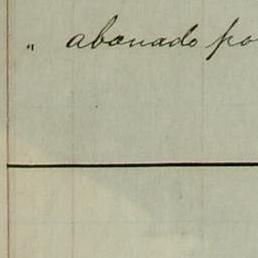 " abonado po